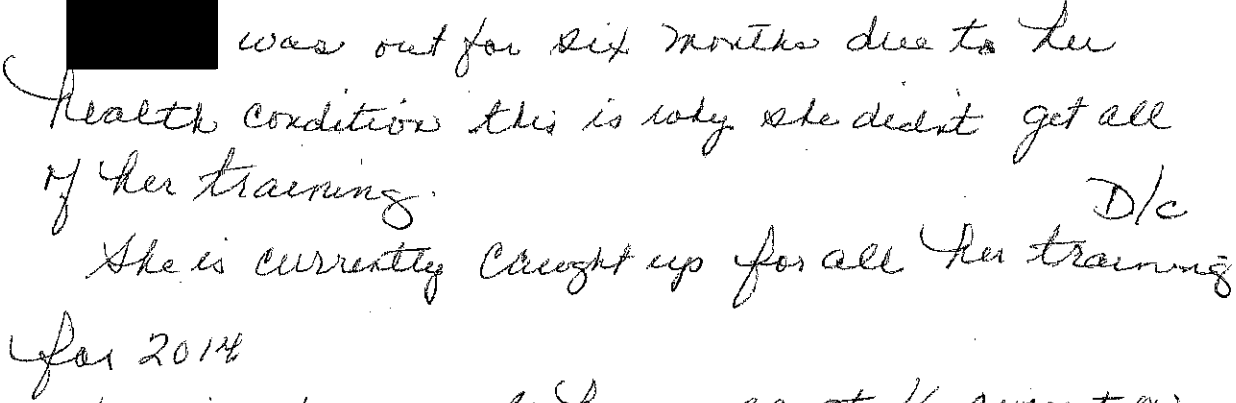 was out for six months due to her
health condition this is why she didn't get all
of her training.
D/c
She is currently caught up for all her training
for 2014